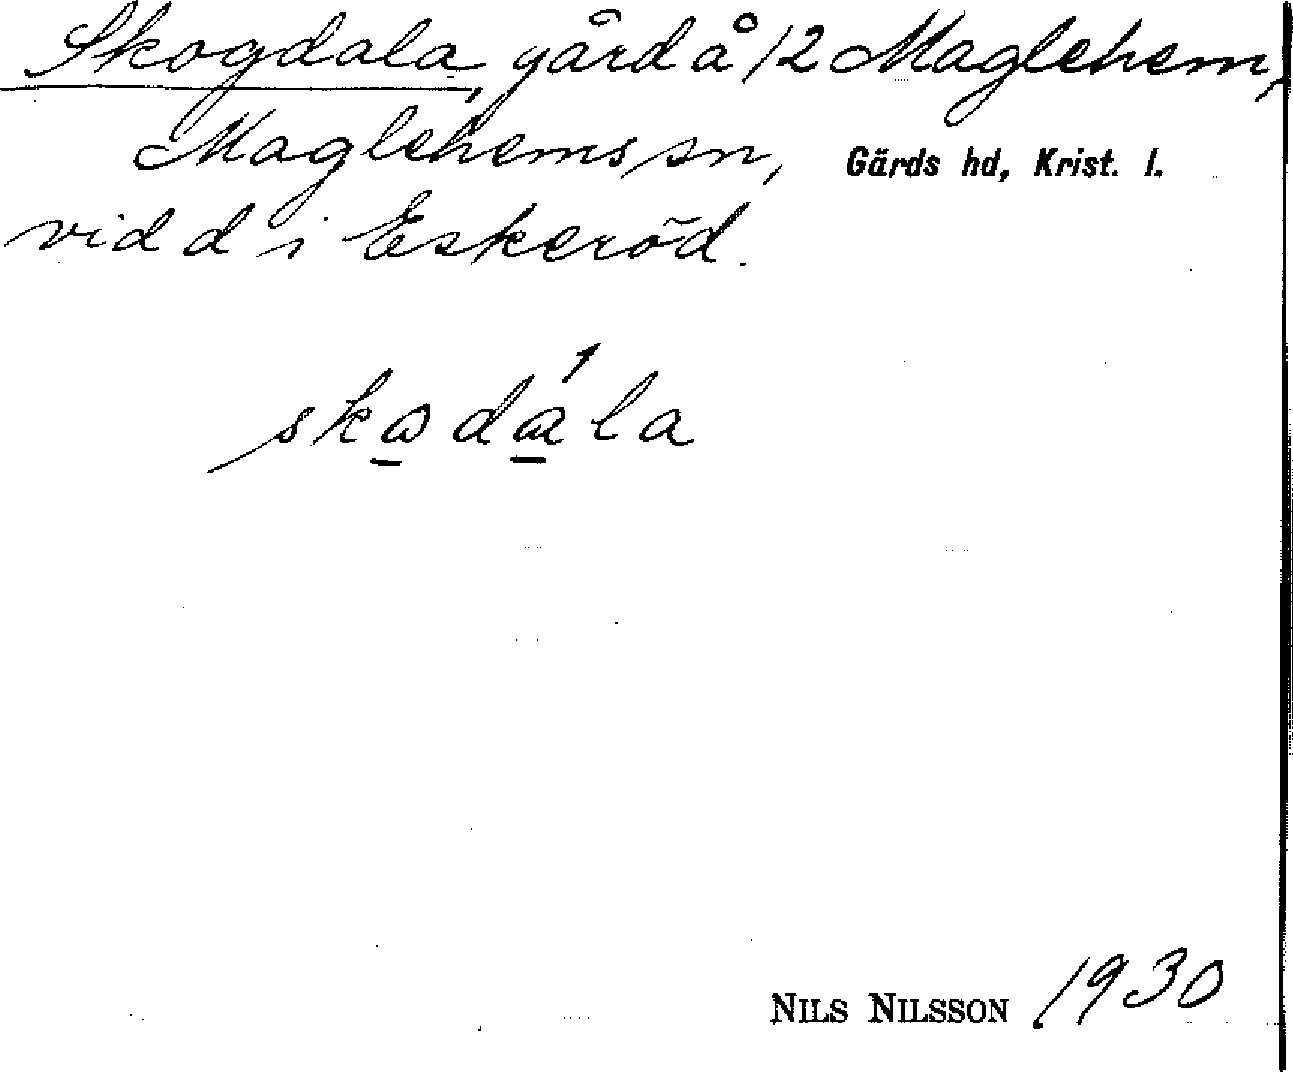 Skogdala, gård å 12 Maglehem,
Maglehems sn, Gärds hd, Krist. l.
vid d i Eskeröd.
NILS NILSSON 1930